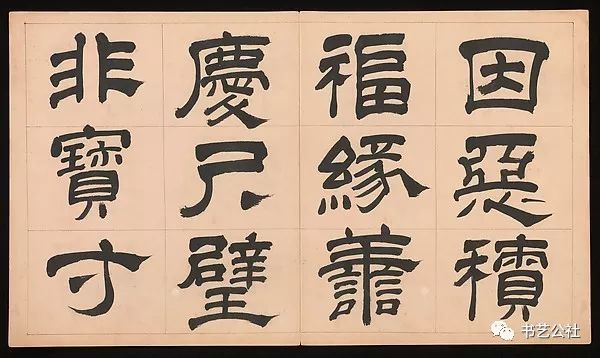 因惡積
福緣善
慶尺璧
非寶寸
书艺公社